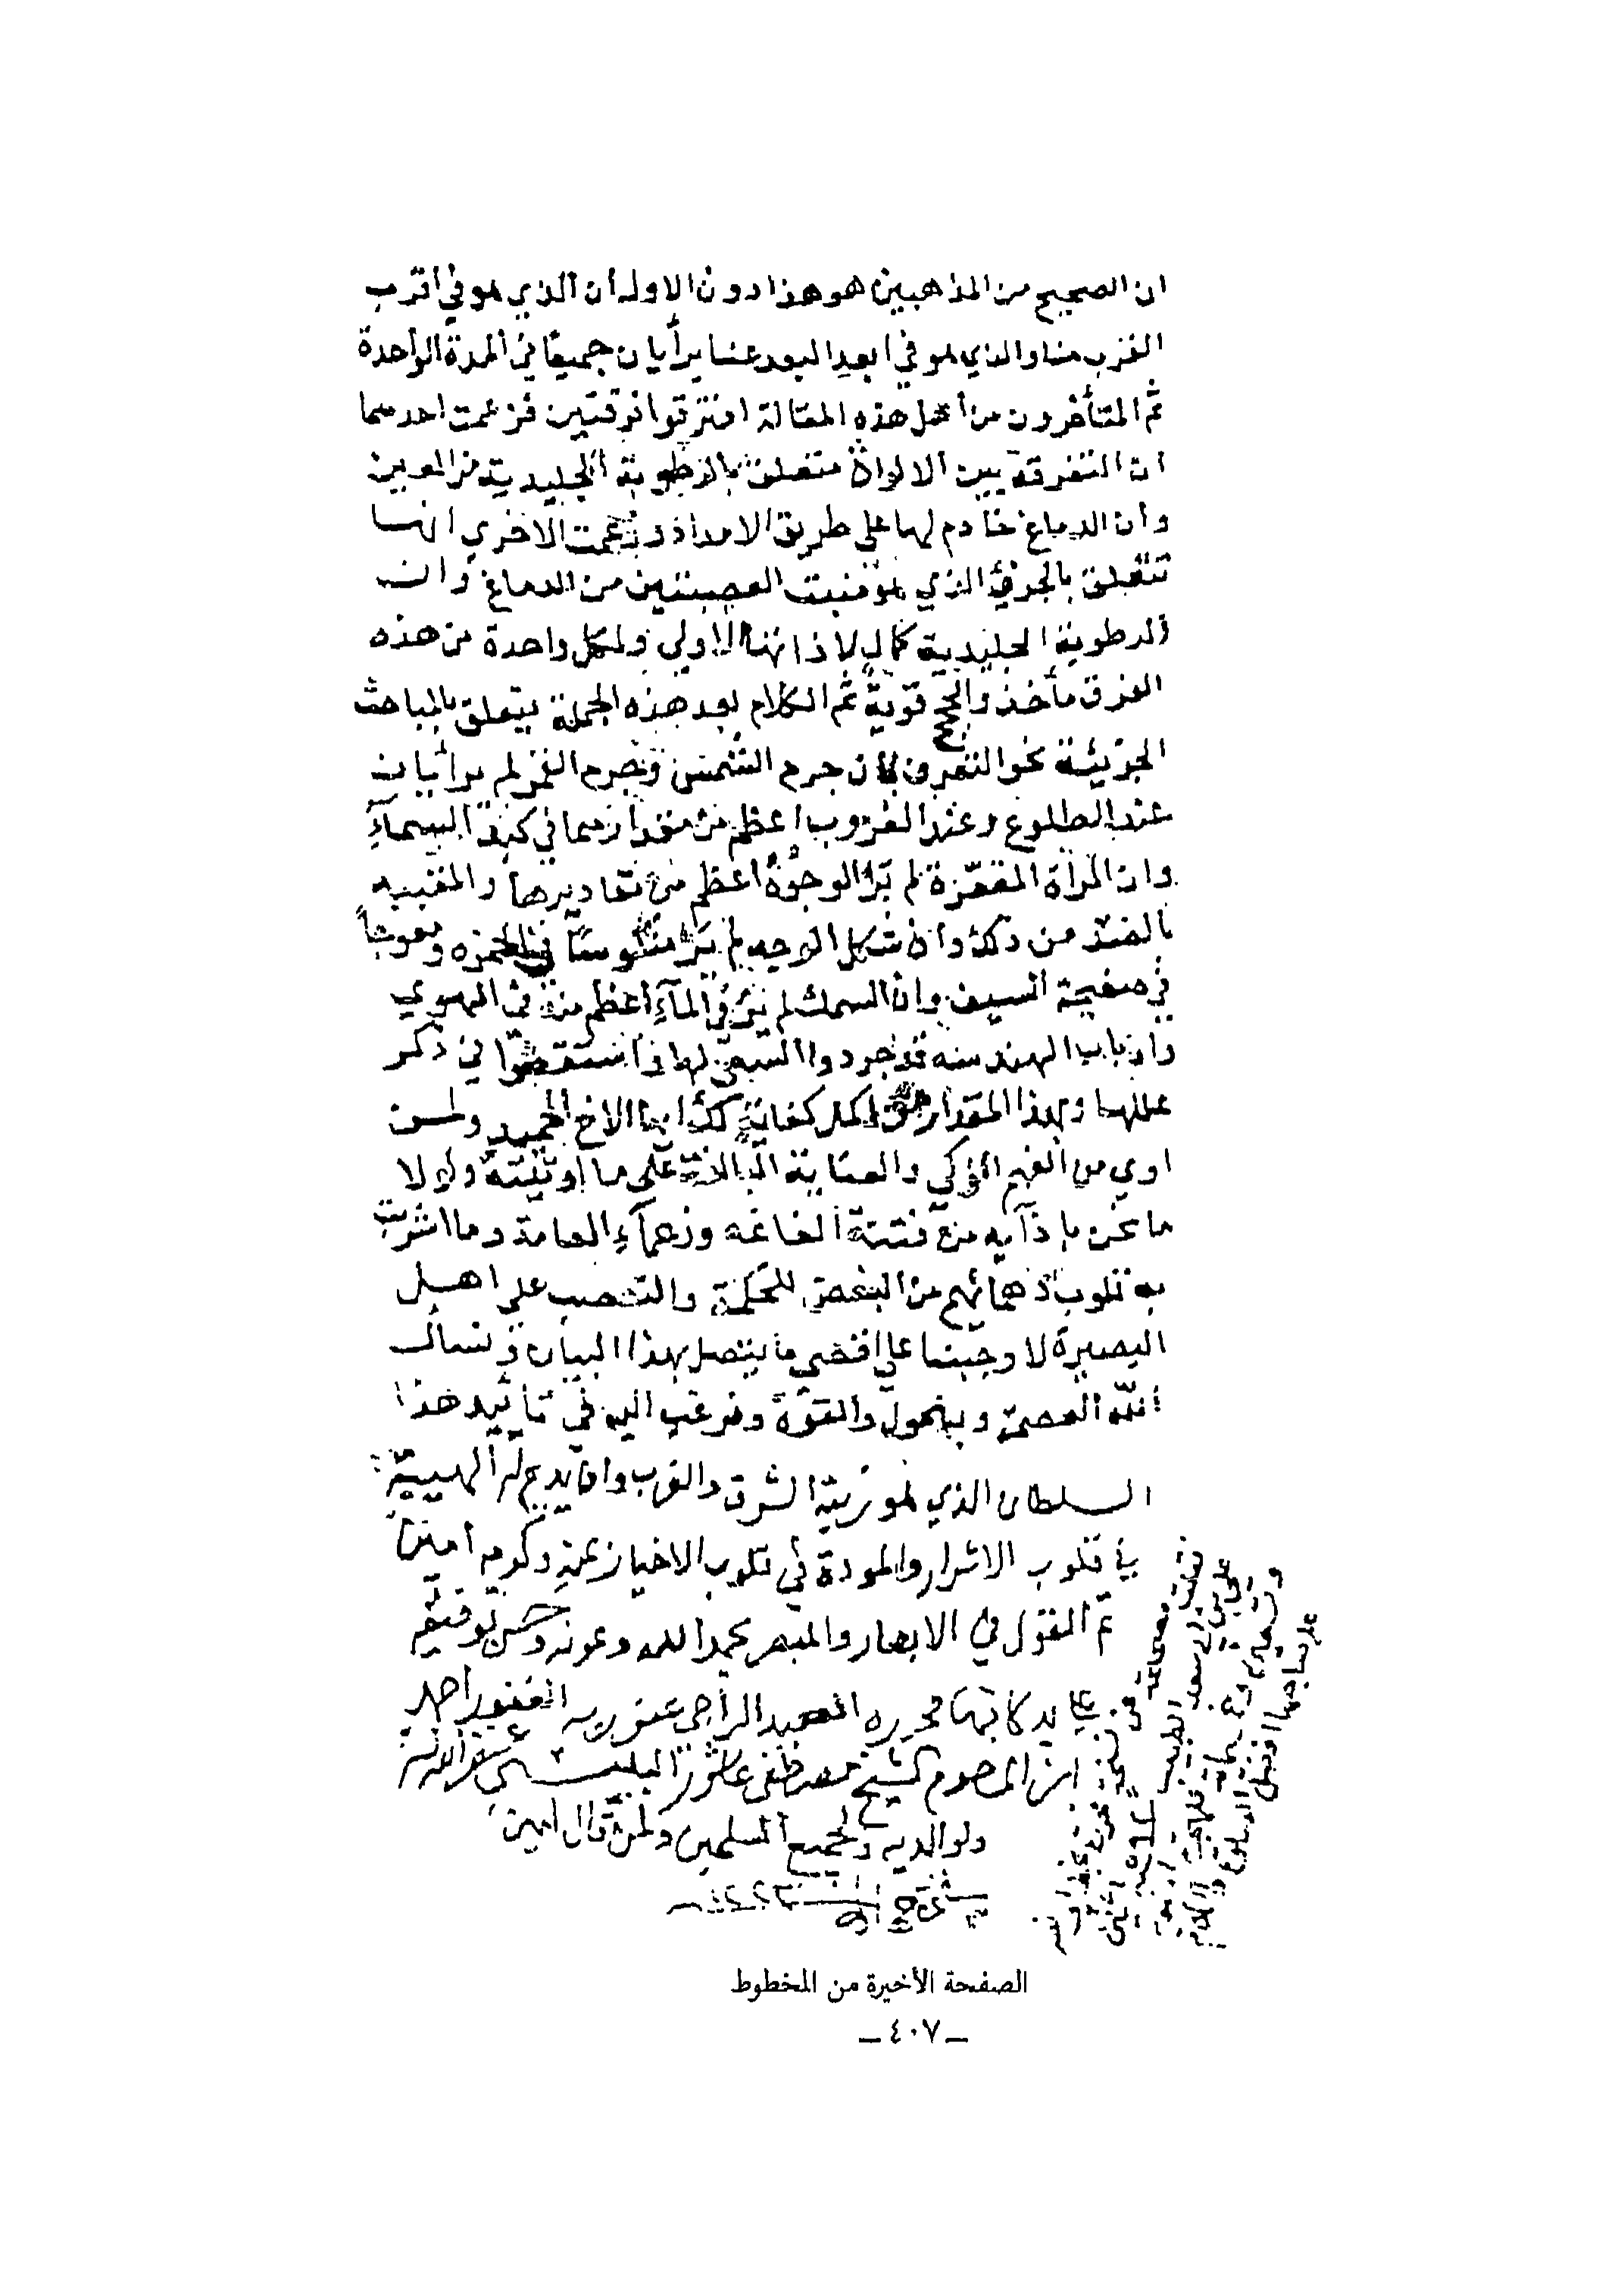 ان الصحيح من المذهبين هو هذا دون الاول ان الذي هو في اقرب
القرب منا والذي هو في ابعد البعد عنا يرأيان جميعًا في المدة الواحدة
ثم المتأخرون من أهل هذه المقالة افترقوا فرقتين فزعمت احدهما
ان التفرقة بين الالوان متعلق بالرطوبة الجليدية من العين
وأن الدماغ خادم لها على طريق الامداد وزعمت الاخري انها
تتعلق بالجزء الذي هو منبت العصبتين من الدماغ وان
الرطوبة الجليدية كمال لاذاتها الاولي ولكل واحدة من هذه
الفرق مأخذ والحجج قوية ثم الكلام بعد هذه الجملة يتعلق بالمباحث
الجزيئة نحو التعرف لان جرم الشمس وجرم القمر لم يرأيان
عند الطلوع وعند الغروب اعظم من مقدارهما في كبد السمآء
وان المرأة المقعّرة لم تَرَ الوجوة اعظم من مقاديرها والمقببه
بالضد من ذلك وان شكل الوجه لم يَرَ منكوسًا في المحمره ومعوجاً
في صفيحة السيف وان السمك لم يرَ في المآء اعظم منه في الهوي
وارباب الهندسه قد جردوا السعي لها فاستقصوا في ذكر
عللها وبهذا المقدار كفاية لك ايها الاخ الحميد ولمن
اوي من الفهم الذكي والعناية البالغة على ما اوتيته ولولا
ما نحن بإذآيه من فتنة الغاغه وزعمآء العامة وما اشربت
به قلوب دهمائهم من البغض للحكمة والتعصب علي اهل
البصيرة لاوجبنا على اقتضى ما يتصل بهذا البيان ونسأل
الله العصمة وبه الحول والقوة ونرغب اليه في تأييد هذا
السلطان الذي هو زينة الشرق والغرب وان يديم له الهيبة
في قلوب الاشرار والمودة في قلوب الاخيار بمنه وكرمه امين
تم القول في الابصار والمبصر بحمد الله وعونه وحسن توفيقه
على يد كاتبها محرره العبد الراجي عفو ربه الغفور احمد
ابن المرحوم الشيخ مصطفى عاشور البلبيسي غفر الله له
ولوالديه ولجميع المسلمين ولمن قال امين
الصفحة الأخيرة من المخطوط
ـ ٤٠٧ ـ